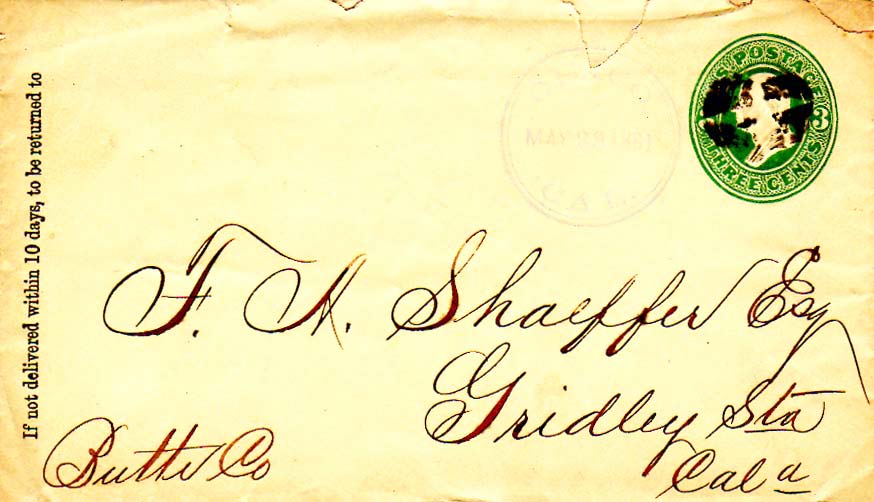 If not delivered within 10 days, to be returned to
U.S. POSTAGE
3
THREE CENTS
MAY 28 1881
CAL.
F. A. Shaeffer Esq
Gridley Sta
Butte Co
Cala